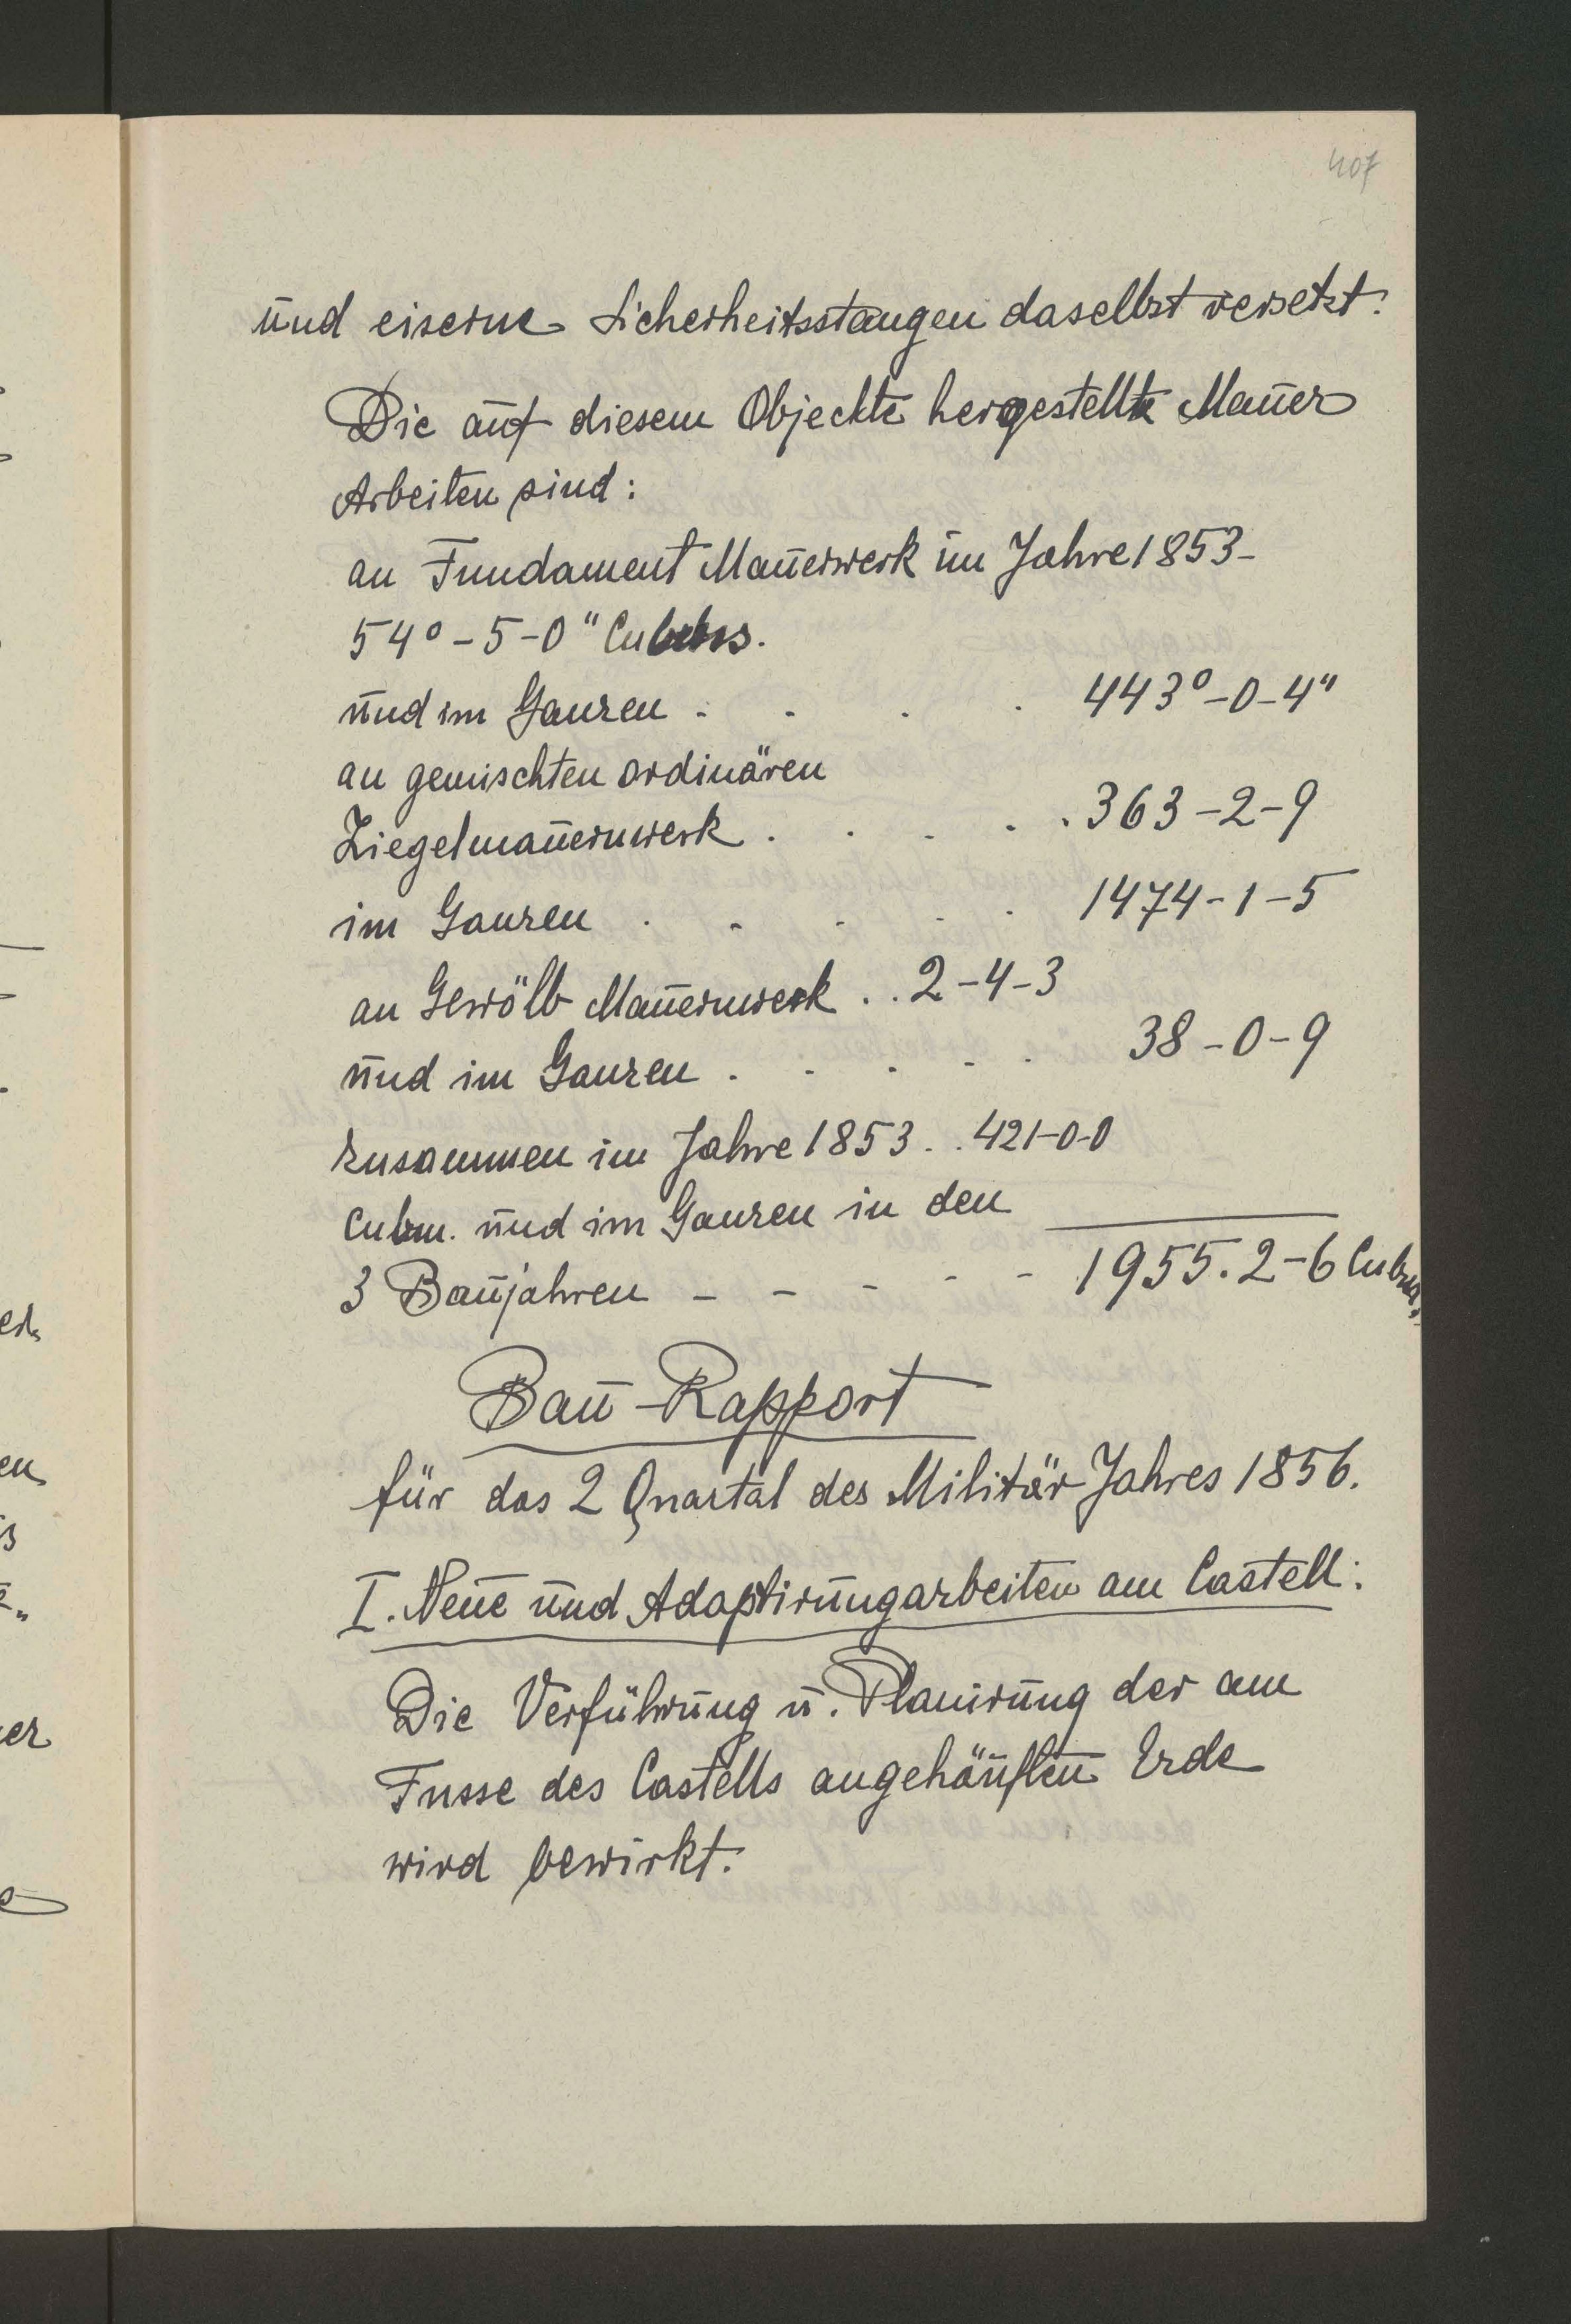 407
und eiserne Sicherheitsstangen daselbst versetzt.
Die auf diesem Objeckte hergestellte Mauer
Arbeiten sind:
an Fundament Mauerwerk im Jahre 1853-
54° - 5 - 0"
und im Ganzen . . . . 443° - 0 - 4"
an gemischten ordinären
Ziegelmauernwerk . . . . . 363 - 2 - 9
im Ganzen . . . . . 1474 - 1 - 5
an Gewölb Mauernwerk . . 2 - 4 - 3
und im Ganzen . . . . . 38 - 0 - 9
zusammen im Jahre 1853 . . 421-0-0
Cubm. und im Ganzen in den
3 Baujahren - - - - - 1955. 2 - 6 Cubm.
Bau-Rapport
für das 2 Quartal des Militär Jahres 1856.
I. Neue und Adaptirungarbeiten am Castell:
Die Verführung u. Planirung der am
Fusse des Castells angehäuften Erde
wird bewirkt.